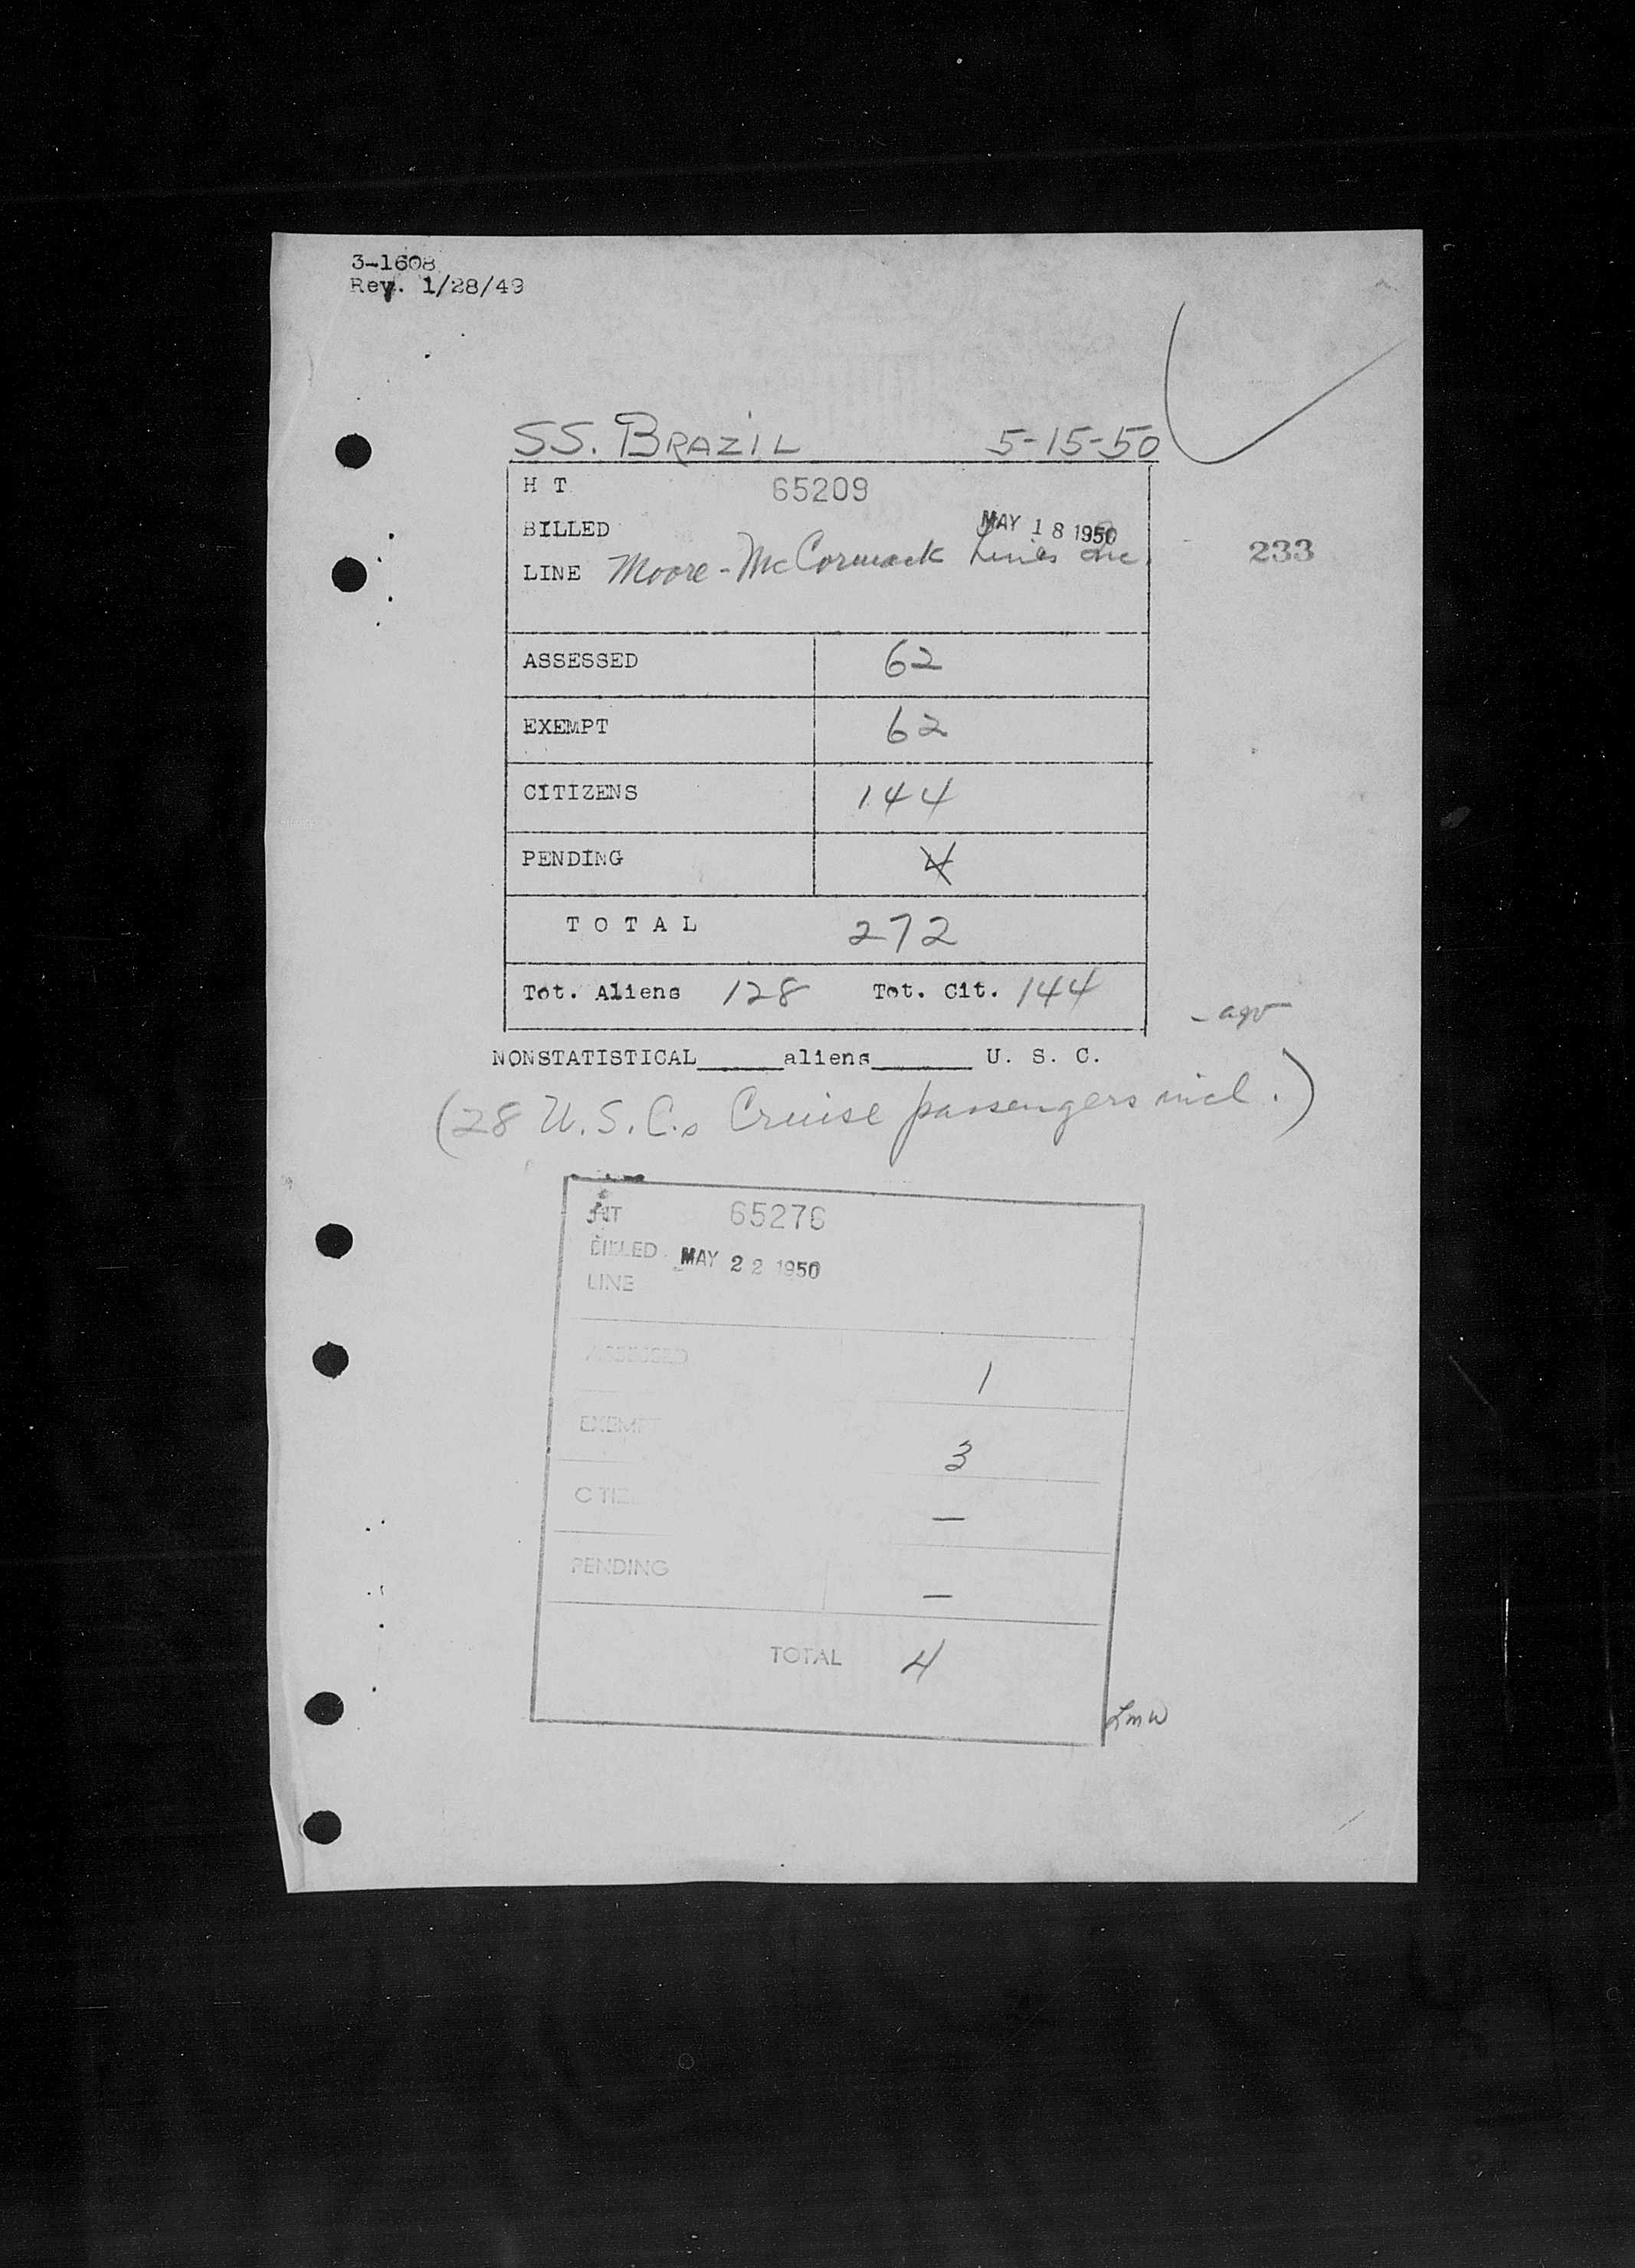 3-1608
Rev. 1/28/49
SS. BRAZIL 5-15-50
H T 65209
BILLED MAY 18 1950
LINE Moore-McCormack Lines Inc.
233
ASSESSED 62
EXEMPT 62
CITIZENS 144
PENDING 4
T O T A L 272
Tot. Aliens 128 Tot. Cit. 144
NONSTATISTICAL_____aliens______ U. S. C.
(28 U.S.C.s Cruise passengers incl.)
65276
BILLED MAY 22 1950
LINE
ASSESSED 1
EXEMPT 3
CITIZ —
PENDING —
TOTAL 4
LMW